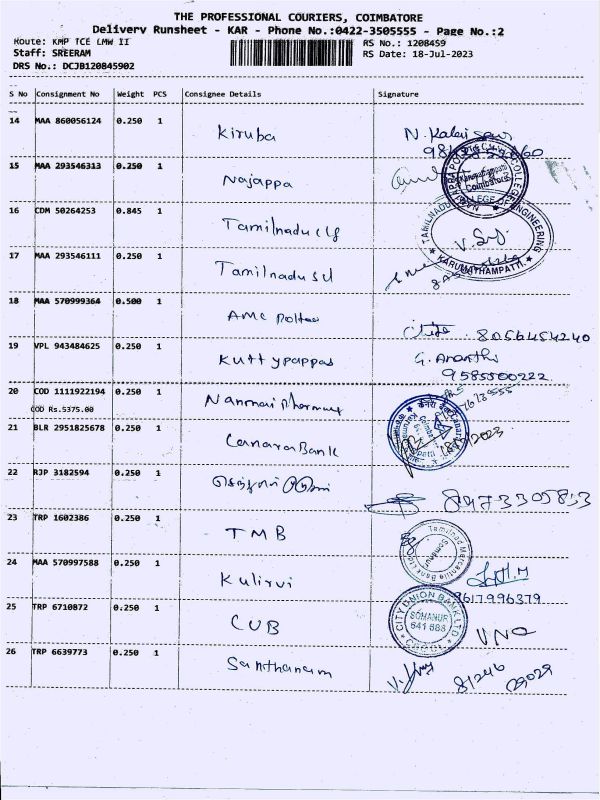 THE PROFESSIONAL COURIERS, COIMBATORE
Delivery Runsheet - KAR - Phone No.:0422-3505555 - Page No.:2
Route: KMP TCE LMW II
RS No.: 1208459
Staff: SREERAM
RS Date: 18-Jul-2023
DRS No.: DCJB120845902
S No Consignment No Weight PCS Consignee Details Signature
14 MAA 860056124 0.250 1 Kiruba
15 MAA 293546313 0.250 1 Najappa
16 CDM 50264253 0.845 1 Tamilnadu clg
17 MAA 293546111 0.250 1 Tamilnadu
18 MAA 570999364 0.500 1 AMC 8056454240
19 VPL 943484625 0.250 1 Kuttypappas G. Ananthi
9585500222
20 COD 1111922194 0.250 1 Nanmai Pharmacy
COD Rs.5375.00
21 BLR 2951825678 0.250 1 Canara Bank
22 RJP 3182594 0.250 1
23 TRP 1602386 0.250 1 TMB
Tamilnad Mercantile Bank Ltd
Somanur
24 MAA 570997588 0.250 1 Kulirvi
9617996379
25 TRP 6710872 0.250 1 CUB
CITY UNION BANK LTD
SOMANUR
641 668
26 TRP 6639773 0.250 1 Santhanam
TAMILNADU COLLEGE OF ENGINEERING
KARUMATHAMPATTI